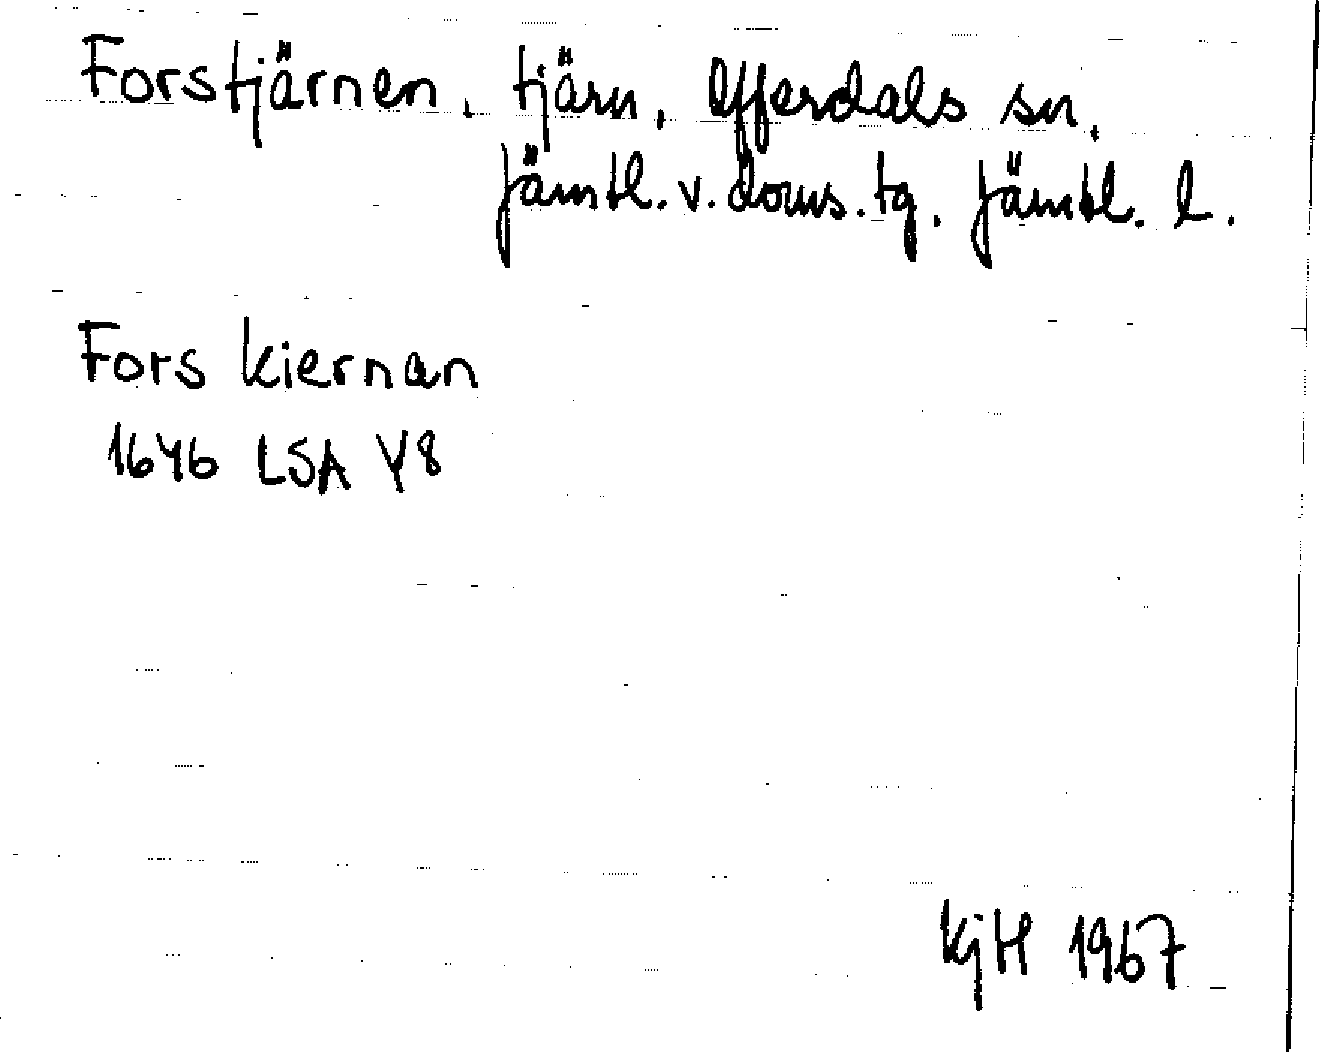 Forstjärnen. tjärn. Offerdals sn.
Jämtl. v. doms. tg. Jämtl. l.
Fors kiernan
1646 LSA Y8
KjH 1967